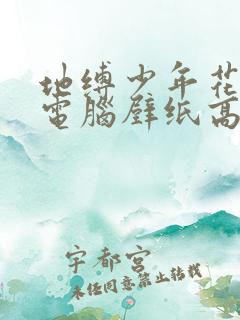 地缚少年花
電腦壁纸高
宇都宮
未经同意禁止转载